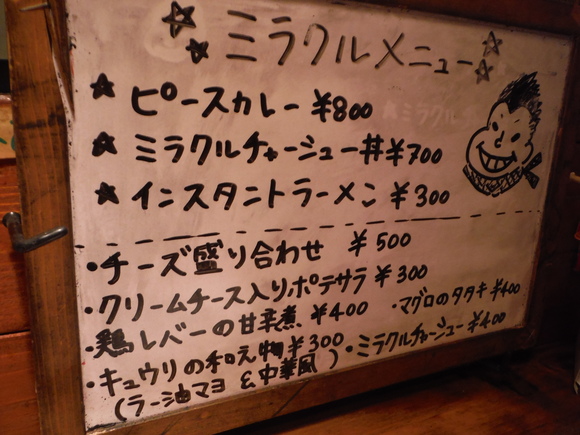 ☆☆ミラクルメニュー☆☆
★ピースカレー ¥800
★ミラクルチャーシュー丼¥700
★インスタントラーメン ¥300
・チーズ盛り合わせ ¥500
・クリームチース入りポテサラ ¥300
・鶏レバーの甘辛煮 ¥400 ・マグロのタタキ ¥400
・キュウリの和え物¥300 ・ミラクルチャーシュー ¥400
(ラー油マヨ &中華風)